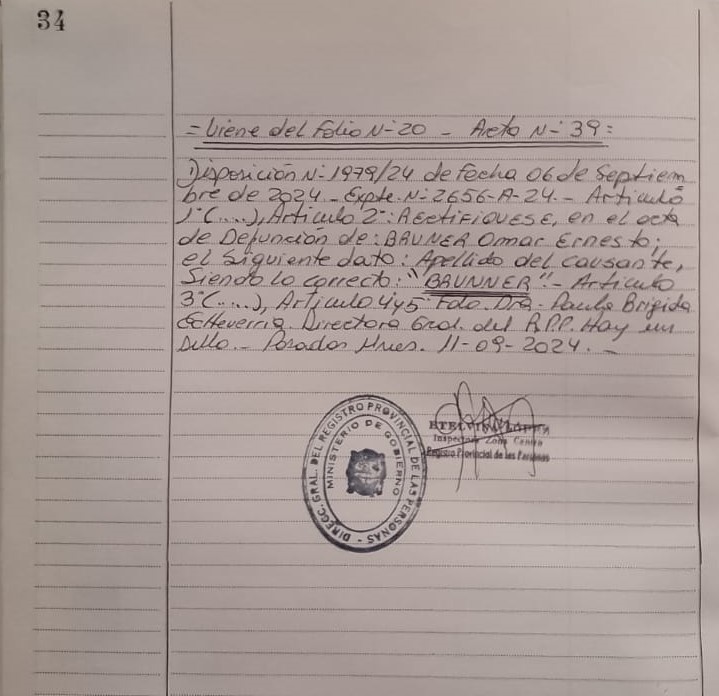 34
= Viene del Folio N-20 - Acta N-° 39 =
Disposición N-° 1979/24 de Fecha 06 de Septiem
bre de 2024 - Expte. N-° 2656-A-24. - Articulo
1° (....), Articulo 2°: RECTIFIQUESE, en el acta
de Defunción de: BRUNER Omar Ernesto;
el siguiente dato: Apellido del causante,
Siendo lo correcto: "BRUNNER". - Articulo
3° (....), Articulo 4y5 Fdo. Dra. Paula Brigida
Echeverria. Directora Gral. del R.P.P. Hay un
Sello. - Posadas Mnes. 11-09-2024. -
DIREC. GRAL. DEL REGISTRO PROVINCIAL DE LAS PERSONAS
MINISTERIO DE GOBIERNO
ETELVINA LOPEZ
Inspectora Zona Centro
Registro Provincial de las Personas